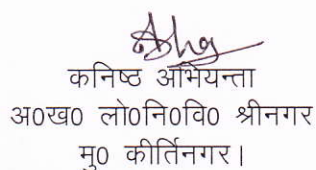 कनिष्ठ अभियन्ता
अ०ख० लो०नि०वि० श्रीनगर
मु० कीर्तिनगर।